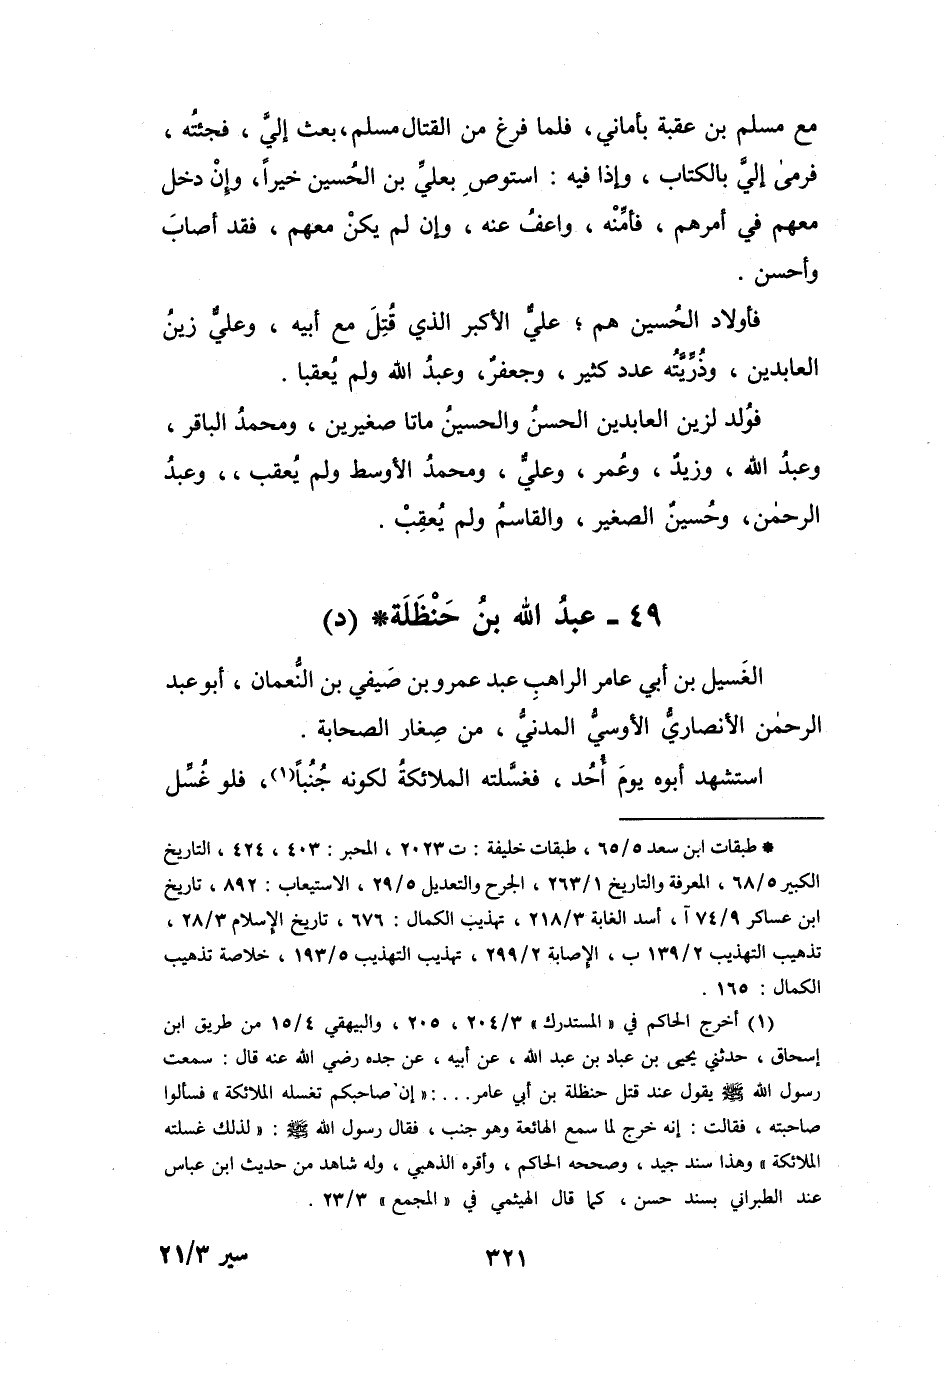 مع مسلم بن عقبة بأماني، فلما فرغ من القتال مسلم، بعث إليَّ ، فجئتُه ،
فرمىٰ إليَّ بالكتاب ، وإذا فيه : استوصِ بعليِّ بن الحُسين خيراً، وإنْ دخل
معهم في أمرهم ، فأمِّنْه ، واعفُ عنه ، وإن لم يكنْ معهم ، فقد أصابَ
وأحسن .
فأولاد الحُسين هم ؛ عليٌّ الأكبر الذي قُتِلَ مع أبيه ، وعليٌّ زينُ
العابدين ، وذُرِّيَّتُه عدد كثير ، وجعفرٌ، وعبدُ الله ولم يُعقبا .
فوُلد لزين العابدين الحسنُ والحسينُ ماتا صغيرين ، ومحمدُ الباقر ،
وعبدُ الله ، وزيدٌ ، وعُمر ، وعليٌّ ، ومحمدُ الأوسط ولم يُعقب ،، وعبدُ
الرحمٰن، وحُسينٌ الصغير ، والقاسمُ ولم يُعقِبْ .
٤٩ - عبدُ الله بنُ حَنْظَلَة* (د)
الغَسيل بن أبي عامر الراهبِ عبد عمرو بن صَيفي بن النُّعمان ، أبو عبد
الرحمٰن الأنصاريُّ الأوسيُّ المدنيُّ ، من صِغار الصحابة .
استشهد أبوه يومَ أُحُد ، فغسَّلته الملائكةُ لكونه جُنُباً(١)، فلو غُسِّل
* طبقات ابن سعد ٦٥/٥ ، طبقات خليفة : ت ٢٠٢٣ ، المحبر : ٤٠٣ ، ٤٢٤ ، التاريخ
الكبير ٦٨/٥ ، المعرفة والتاريخ ٢٦٣/١ ، الجرح والتعديل ٢٩/٥ ، الاستيعاب : ٨٩٢ ، تاريخ
ابن عساكر ٧٤/٩ آ ، أسد الغابة ٢١٨/٣ ، تهذيب الكمال : ٦٧٦ ، تاريخ الإسلام ٢٨/٣ ،
تذهيب التهذيب ١٣٩/٢ ب ، الإصابة ٢٩٩/٢ ، تهذيب التهذيب ١٩٣/٥ ، خلاصة تذهيب
الكمال : ١٦٥ .
(١) أخرج الحاكم في « المستدرك » ٢٠٤/٣ ، ٢٠٥ ، والبيهقي ١٥/٤ من طريق ابن
إسحاق ، حدثني يحيى بن عباد بن عبد الله ، عن أبيه ، عن جده رضي الله عنه قال : سمعت
رسول الله ﷺ يقول عند قتل حنظلة بن أبي عامر...: « إن صاحبكم تغسله الملائكة » فسألوا
صاحبته ، فقالت : إنه خرج لما سمع الهائعة وهو جنب ، فقال رسول الله ﷺ : « لذلك غسلته
الملائكة » وهذا سند جيد ، وصححه الحاكم ، وأقره الذهبي ، وله شاهد من حديث ابن عباس
عند الطبراني بسند حسن ، كما قال الهيثمي في « المجمع » ٢٣/٣ .
٣٢١
سير ٢١/٣